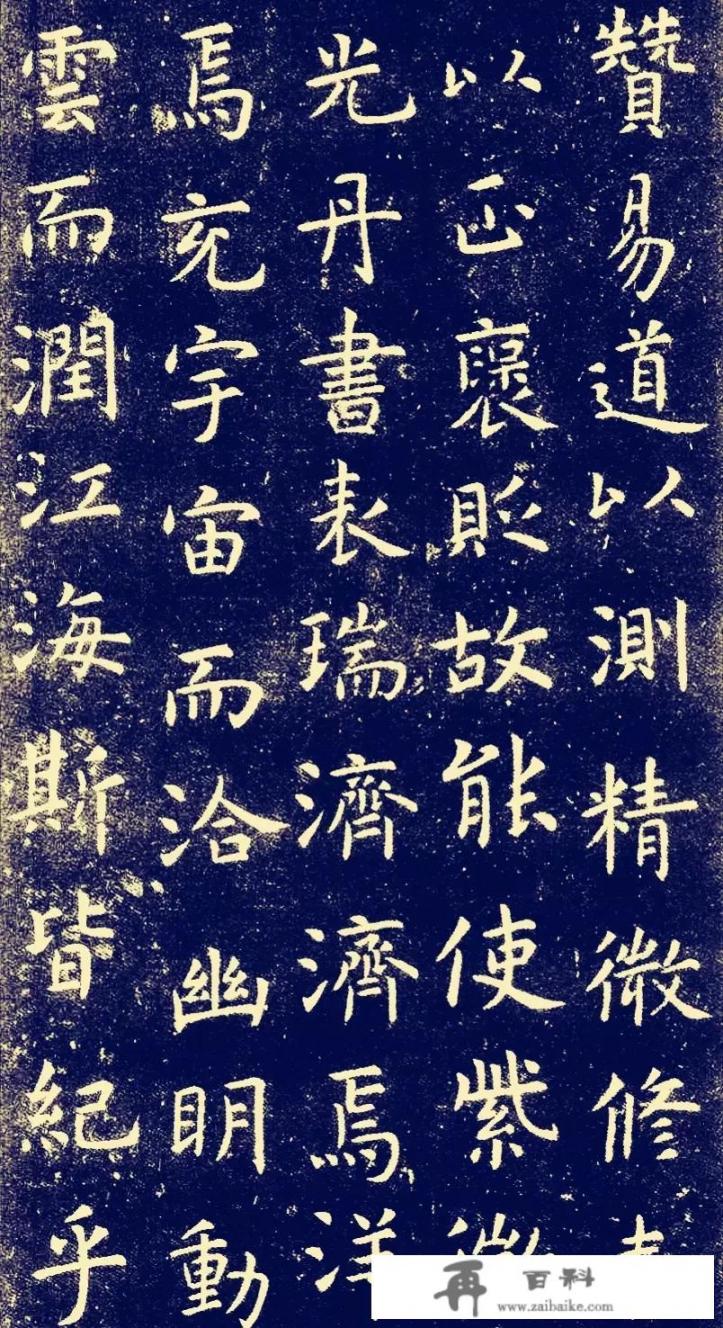 贊易道以測精微修
以正褒貶故能使紫微
光丹書表瑞濟濟焉洋
焉充宇宙而洽幽明動
雲而潤江海斯皆紀乎
再 百科
www.zaibaike.com